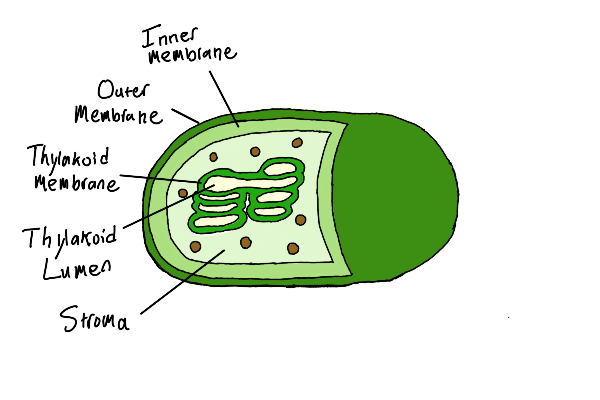 Inner
membrane
Outer
Membrane
Thylakoid
Membrane
Thylakoid
Lumen
Stroma